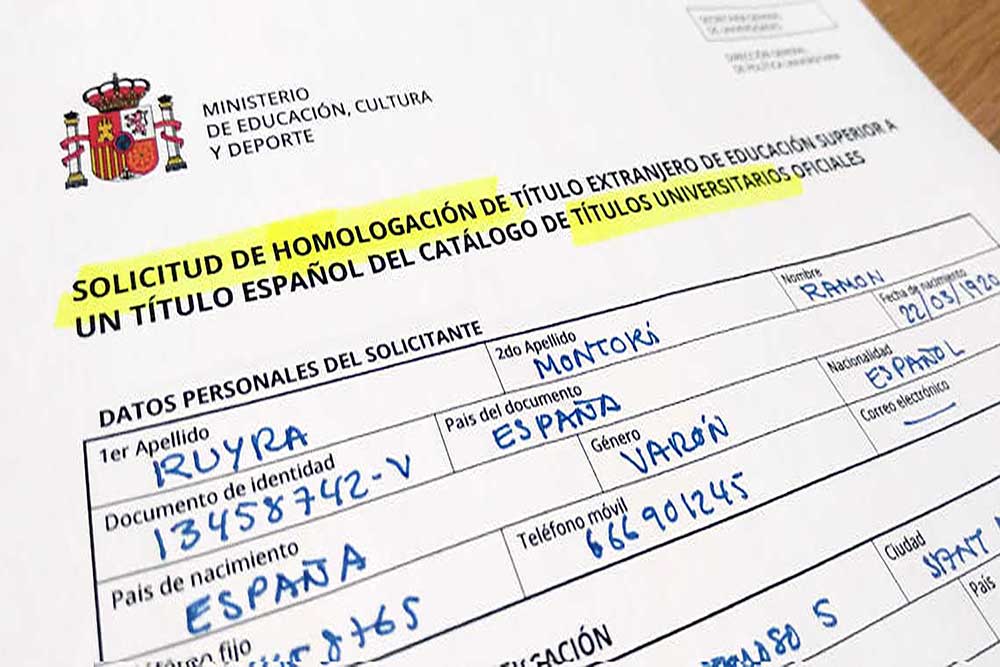 SECRETARÍA GENERAL
DE UNIVERSIDADES
DIRECCIÓN GENERAL
DE POLÍTICA UNIVERSITARIA
MINISTERIO
DE EDUCACIÓN, CULTURA
Y DEPORTE
SOLICITUD DE HOMOLOGACIÓN DE TÍTULO EXTRANJERO DE EDUCACIÓN SUPERIOR A
UN TÍTULO ESPAÑOL DEL CATÁLOGO DE TÍTULOS UNIVERSITARIOS OFICIALES
DATOS PERSONALES DEL SOLICITANTE
1er Apellido 2do Apellido Nombre
RUYRA MONTORI RAMON
Documento de identidad País del documento Fecha de nacimiento
13458742-V ESPAÑA 22/03/1920
País de nacimiento Género Nacionalidad
ESPAÑA VARÓN ESPAÑOL
fijo Teléfono móvil Correo electrónico
8765 666901245
Ciudad
SANT
País